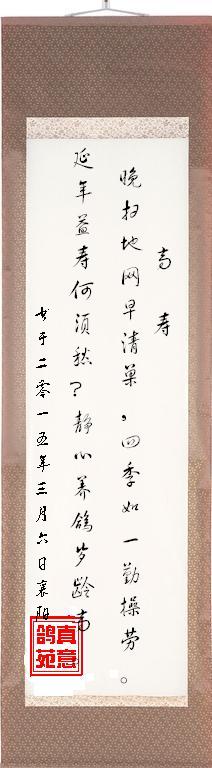 高寿
晚扫地网早清巢，四季如一勤操劳。
延年益寿何须愁？静心养鸽岁龄高
书于二零一五年三月六日襄阳
真意
鸽苑